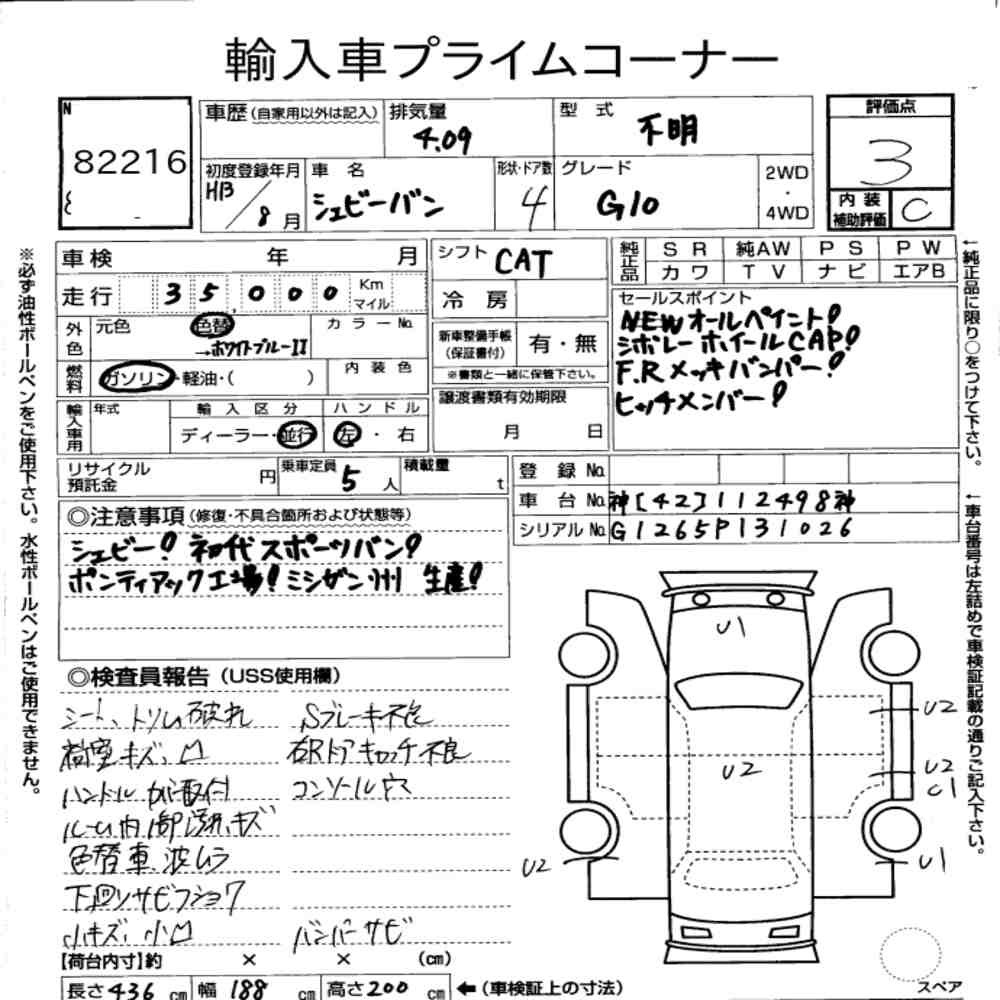 輸入車プライムコーナー
N
82216
車歴 (自家用以外は記入)
排気量
4.09
型 式
不明
評価点
3
初度登録年月
H13/8月
車 名
シェビーバン
形状・ドア数
4
グレード
G10
2WD
・
4WD
内 装
補助評価
C
車検 年 月
シフト CAT
純正品
S R 純AW P S P W
カ ワ T V ナ ビ エアB
走行 35,000 Km マイル
冷 房
セールスポイント
NEWオールペイント!
シボレーホイールCAP!
F.Rメッキバンパー!
ヒッチメンバー!
外色
元色
色替
→ホワイトブルーII
カ ラ ー No.
新車整備手帳
(保証書付)
有・無
※書類と一緒に保管下さい。
燃料
ガソリン・軽油・( )
内 装 色
譲渡書類有効期限
月 日
輸入車用
年式
輸 入 区 分
ハ ン ド ル
ディーラー・並行
左 ・ 右
リサイクル
預託金
円
乗車定員 5人
積載量 t
登 録 No.
車 台 No. 神[42]112498神
シリアル No. G1265P131026
◎注意事項 (修復・不具合箇所および状態等)
シェビー! 初代スポーツバン!
ポンティアック工場! ミシガン州 生産!
◎検査員報告 (USS使用欄)
シート、トリム破れ Sブレーキ不良
荷室キズ、凹 右Rドアキャッチ不良
ハンドル 取付 コンソール穴
ルーム内 キズ
色替車 波ムラ
下廻りサビフショク
小キズ、小凹 バンパーサビ
U1
U2
U2
U2
C1
U2
U1
スペア
【荷台内寸】約 × × (cm)
長さ436cm 幅188cm 高さ200cm ←(車検証上の寸法)
※必ず油性ボールペンをご使用下さい。水性ボールペンはご使用できません。
←純正品に限り○をつけて下さい。
←車台番号は左詰めで車検証記載の通りご記入下さい。